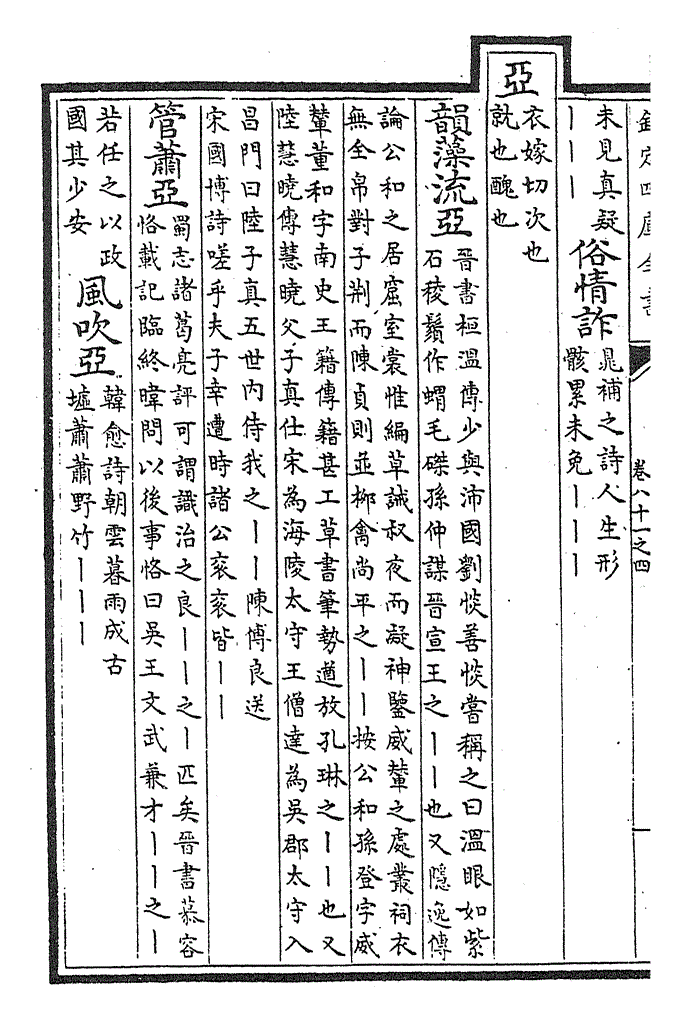 欽定四庫全書
卷八十一之四
未見真疑
丨丨丨
俗情詐
晁補之詩人生形
骸累未免丨丨丨
亞
衣嫁切次也
就也醜也
韻藻流亞
晉書桓溫傳少與沛國劉惔善惔嘗稱之曰溫眼如紫
石稜鬚作蝟毛磔孫仲謀晉宣王之丨丨也又隱逸傳
論公和之居窟室裳惟編草誡叔夜而凝神鑒威輦之處叢祠衣
無全帛對子荆而陳貞則並柳禽尚平之丨丨按公和孫登字威
輦董和字南史王籍傳籍甚工草書筆勢遒放孔琳之丨丨也又
陸慧曉傳慧曉父子真仕宋為海陵太守王僧達為吳郡太守入
昌門曰陸子真五世内侍我之丨丨陳傅良送
宋國博詩嗟乎夫子幸遭時諸公衮衮皆丨丨
管蕭亞
蜀志諸葛亮評可謂識治之良丨丨之丨匹矣晉書慕容
恪載記臨終暐問以後事恪曰吳王文武兼才丨丨之丨
若任之以政
國其少安
風吹亞
韓愈詩朝雲暮雨成古
墟蕭蕭野竹丨丨丨